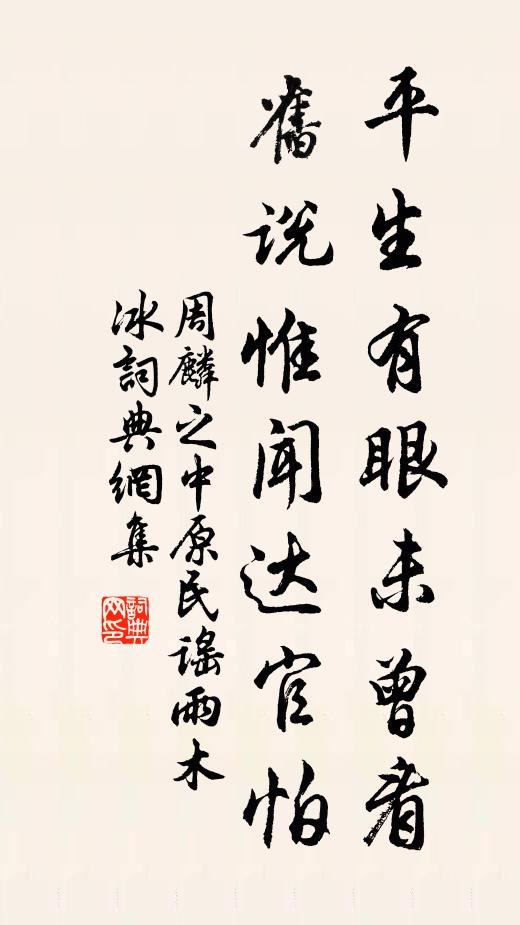 平生有眼未曾看
舊说惟闻达官怕
周麟之中原民謠雨木
冰詞典網集
詞典
网印